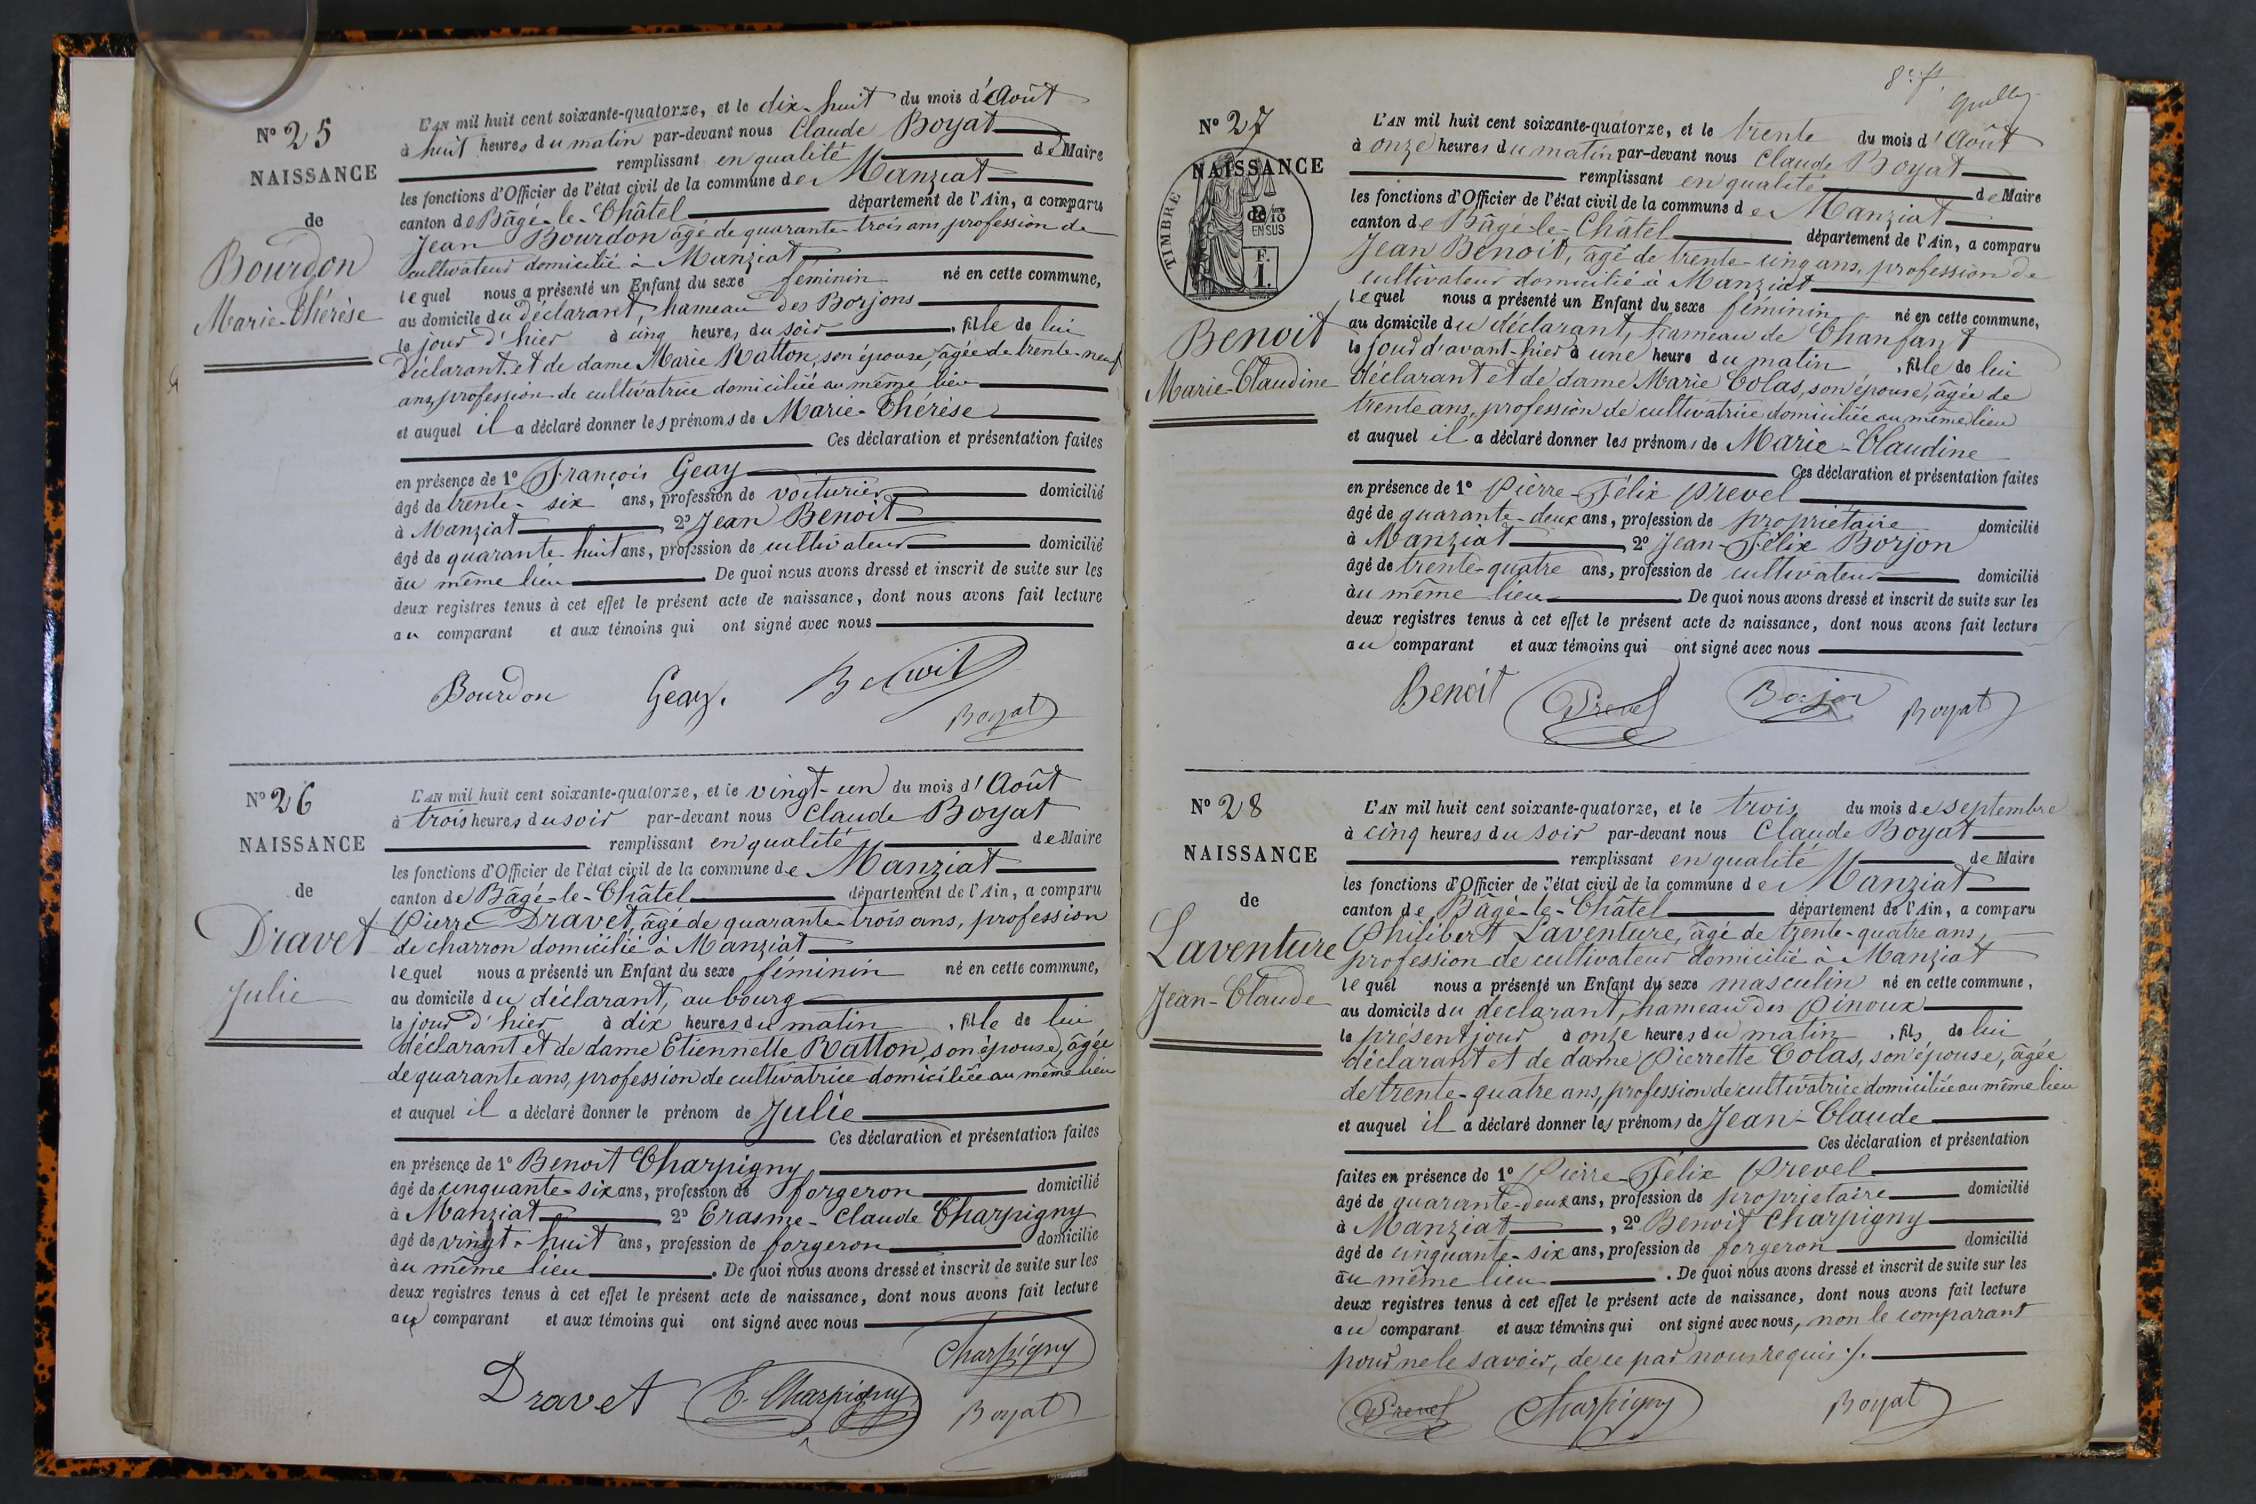 N° 25
NAISSANCE
de
Bourdon
Marie-Thérèse
L'AN mil huit cent soixante-quatorze, et le dix-huit du mois d'Août
à huit heures du matin par-devant nous Claude Boyat
remplissant en qualité de Maire
les fonctions d'Officier de l'état civil de la commune de Manziat
canton de Bâgé-le-Châtel département de l'Ain, a comparu
Jean Bourdon âgé de quarante-trois ans profession de
cultivateur domicilié à Manziat
lequel nous a présenté un Enfant du sexe féminin né en cette commune,
au domicile du déclarant, hameau des Borjons
le jour d'hier à cinq heures du soir, fille de lui
déclarant et de dame Marie Ratton, son épouse, âgée de trente-neuf
ans, profession de cultivatrice domiciliée au même lieu
et auquel il a déclaré donner les prénoms de Marie-Thérèse
Ces déclaration et présentation faites
en présence de 1° François Geay
âgé de trente-six ans, profession de voiturier domicilié
à Manziat, 2° Jean Benoit
âgé de quarante-huit ans, profession de cultivateur domicilié
au même lieu. De quoi nous avons dressé et inscrit de suite sur les
deux registres tenus à cet effet le présent acte de naissance, dont nous avons fait lecture
au comparant et aux témoins qui ont signé avec nous
Bourdon Geay. Benoit
Boyat
N° 26
NAISSANCE
de
Dravet
Julie
L'AN mil huit cent soixante-quatorze, et le vingt-un du mois d'Août
à trois heures du soir par-devant nous Claude Boyat
remplissant en qualité de Maire
les fonctions d'Officier de l'état civil de la commune de Manziat
canton de Bâgé-le-Châtel département de l'Ain, a comparu
Pierre Dravet, âgé de quarante-trois ans, profession
de charron domicilié à Manziat
lequel nous a présenté un Enfant du sexe féminin né en cette commune,
au domicile du déclarant, au bourg
le jour d'hier à dix heures du matin, fille de lui
déclarant et de dame Etiennette Ratton, son épouse, âgée
de quarante ans, profession de cultivatrice domiciliée au même lieu
et auquel il a déclaré donner le prénom de Julie
Ces déclaration et présentation faites
en présence de 1° Benoit Charpigny
âgé de cinquante-six ans, profession de forgeron domicilié
à Manziat 2° Erasme-Claude Charpigny
âgé de vingt-huit ans, profession de forgeron domicilié
au même lieu. De quoi nous avons dressé et inscrit de suite sur les
deux registres tenus à cet effet le présent acte de naissance, dont nous avons fait lecture
au comparant et aux témoins qui ont signé avec nous
Charpigny
Dravet E. Charpigny Boyat
8e ft
N° 27
NAISSANCE
de
TIMBRE
2/10
EN SUS
F.
1.
Benoit
Marie-Claudine
L'AN mil huit cent soixante-quatorze, et le trente du mois d'Août
à onze heures du matin par-devant nous Claude Boyat
remplissant en qualité de Maire
les fonctions d'Officier de l'état civil de la commune de Manziat
canton de Bâgé-le-Châtel département de l'Ain, a comparu
Jean Benoit, âgé de trente-cinq ans, profession de
cultivateur domicilié à Manziat
lequel nous a présenté un Enfant du sexe féminin né en cette commune,
au domicile du déclarant, hameau de Chanfant
le jour d'avant-hier à une heure du matin, fille de lui
déclarant et de dame Marie Colas, son épouse, âgée de
trente ans, profession de cultivatrice domiciliée au même lieu
et auquel il a déclaré donner les prénoms de Marie-Claudine
Ces déclaration et présentation faites
en présence de 1° Pierre-Félix Prevel
âgé de quarante-deux ans, profession de propriétaire domicilié
à Manziat, 2° Jean-Félix Borjon
âgé de trente-quatre ans, profession de cultivateur domicilié
au même lieu. De quoi nous avons dressé et inscrit de suite sur les
deux registres tenus à cet effet le présent acte de naissance, dont nous avons fait lecture
au comparant et aux témoins qui ont signé avec nous
Benoit Prevel Borjon Boyat
N° 28
NAISSANCE
de
Laventure
Jean-Claude
L'AN mil huit cent soixante-quatorze, et le trois du mois de septembre
à cinq heures du soir par-devant nous Claude Boyat
remplissant en qualité de Maire
les fonctions d'Officier de l'état civil de la commune de Manziat
canton de Bâgé-le-Châtel département de l'Ain, a comparu
Philibert Laventure, âgé de trente-quatre ans,
profession de cultivateur domicilié à Manziat
lequel nous a présenté un Enfant du sexe masculin né en cette commune,
au domicile du déclarant, hameau des Pinoux
le présent jour à onze heures du matin, fils de lui
déclarant et de dame Pierrette Colas, son épouse, âgée
de trente-quatre ans, profession de cultivatrice domiciliée au même lieu
et auquel il a déclaré donner les prénoms de Jean-Claude
Ces déclaration et présentation
faites en présence de 1° Pierre-Félix Prevel
âgé de quarante-deux ans, profession de propriétaire domicilié
à Manziat, 2° Benoit Charpigny
âgé de cinquante-six ans, profession de forgeron domicilié
au même lieu. De quoi nous avons dressé et inscrit de suite sur les
deux registres tenus à cet effet le présent acte de naissance, dont nous avons fait lecture
au comparant et aux témoins qui ont signé avec nous, non le comparant
pour ne le savoir, de ce par nous requis ./.
Prevel Charpigny Boyat